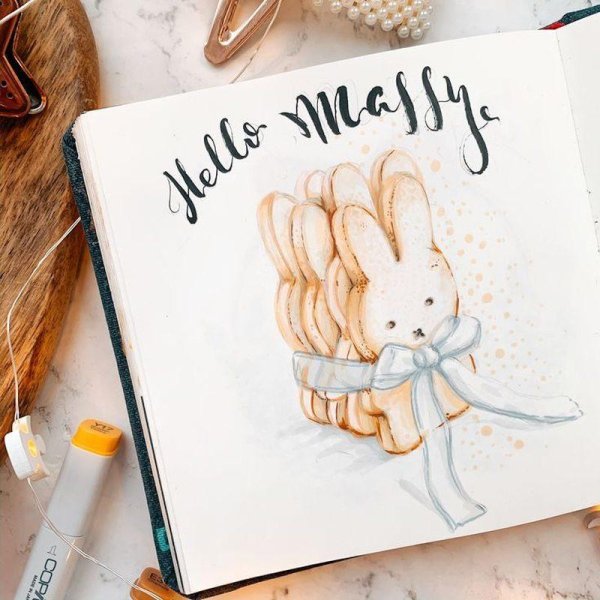 Hello Maffy
COPIC